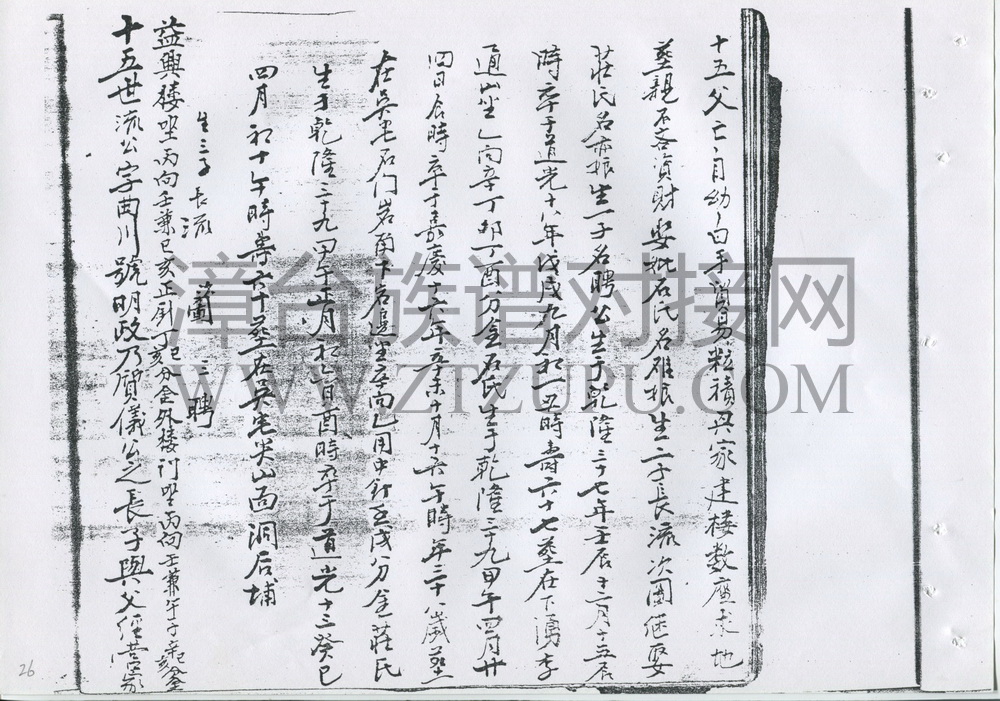 十五父亡自幼白手貿易粒積興家建樓數座求地
葬親不吝資財娶妣石氏名雅振生二子長流次圖繼娶
莊氏名赤振生一子名聘公生于乾隆三十七年壬辰十二月十五辰
時卒于道光十八年戊戌九月初一丑時壽六十七葬在下湧李
通山坐乙向辛丁卯丁酉分金石氏生于乾隆三十九甲午四月廿
四日辰時卒于嘉慶十六年辛未十月十六午時年三十八歲葬
在吳宅石門岩角下名邊坐辛向乙用中針丙戌分金莊氏
生于乾隆三十九甲午正月初六日酉時卒于道光十三癸巳
四月初十午時壽六十葬在吳宅尖山面洞后埔
生三子 長流 次圖 三聘
益興樓坐丙向壬兼巳亥正針丁巳丁亥分金外樓門坐丙向壬兼午子分金
十五世流公字曲川號明政乃質儀公之長子與父經營家
26
漳台族谱对接网
WWW.ZTZUPU.COM